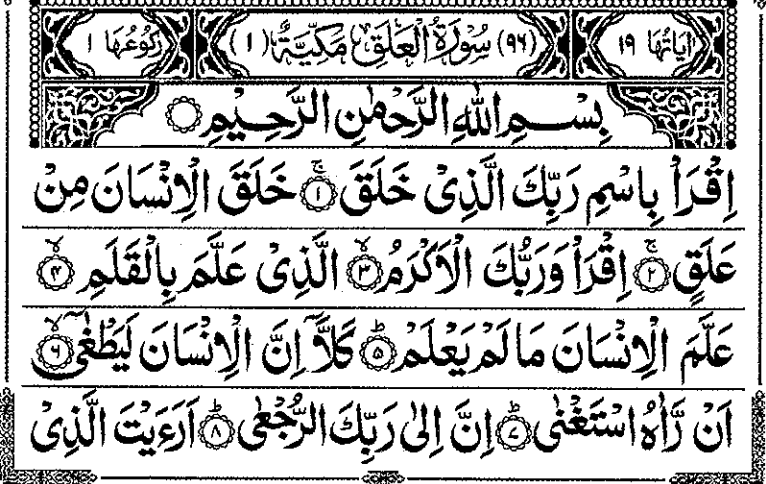 اٰيَاتُهَا ١٩ (٩٦) سُوْرَةُ الْعَلَقِ مَكِّيَّةٌ (١) رُكُوْعُهَا ١
بِسْمِ اللّٰهِ الرَّحْمٰنِ الرَّحِيْمِ
اِقْرَاْ بِاسْمِ رَبِّكَ الَّذِىْ خَلَقَ ۚ‏﴿۱﴾ خَلَقَ الْاِنْسَانَ مِنْ
عَلَقٍ ۚ‏﴿۲﴾ اِقْرَاْ وَرَبُّكَ الْاَكْرَمُ ۙ‏﴿۳﴾ الَّذِىْ عَلَّمَ بِالْقَلَمِ ۙ‏﴿۴﴾
عَلَّمَ الْاِنْسَانَ مَا لَمْ يَعْلَمْ ؕ‏﴿۵﴾ كَلَّاۤ اِنَّ الْاِنْسَانَ لَيَطْغٰٓى ۙ‏﴿۶﴾
اَنْ رَّاٰهُ اسْتَغْنٰى ؕ‏﴿۷﴾ اِنَّ اِلٰى رَبِّكَ الرُّجْعٰى ؕ‏﴿۸﴾ اَرَءَيْتَ الَّذِىْ